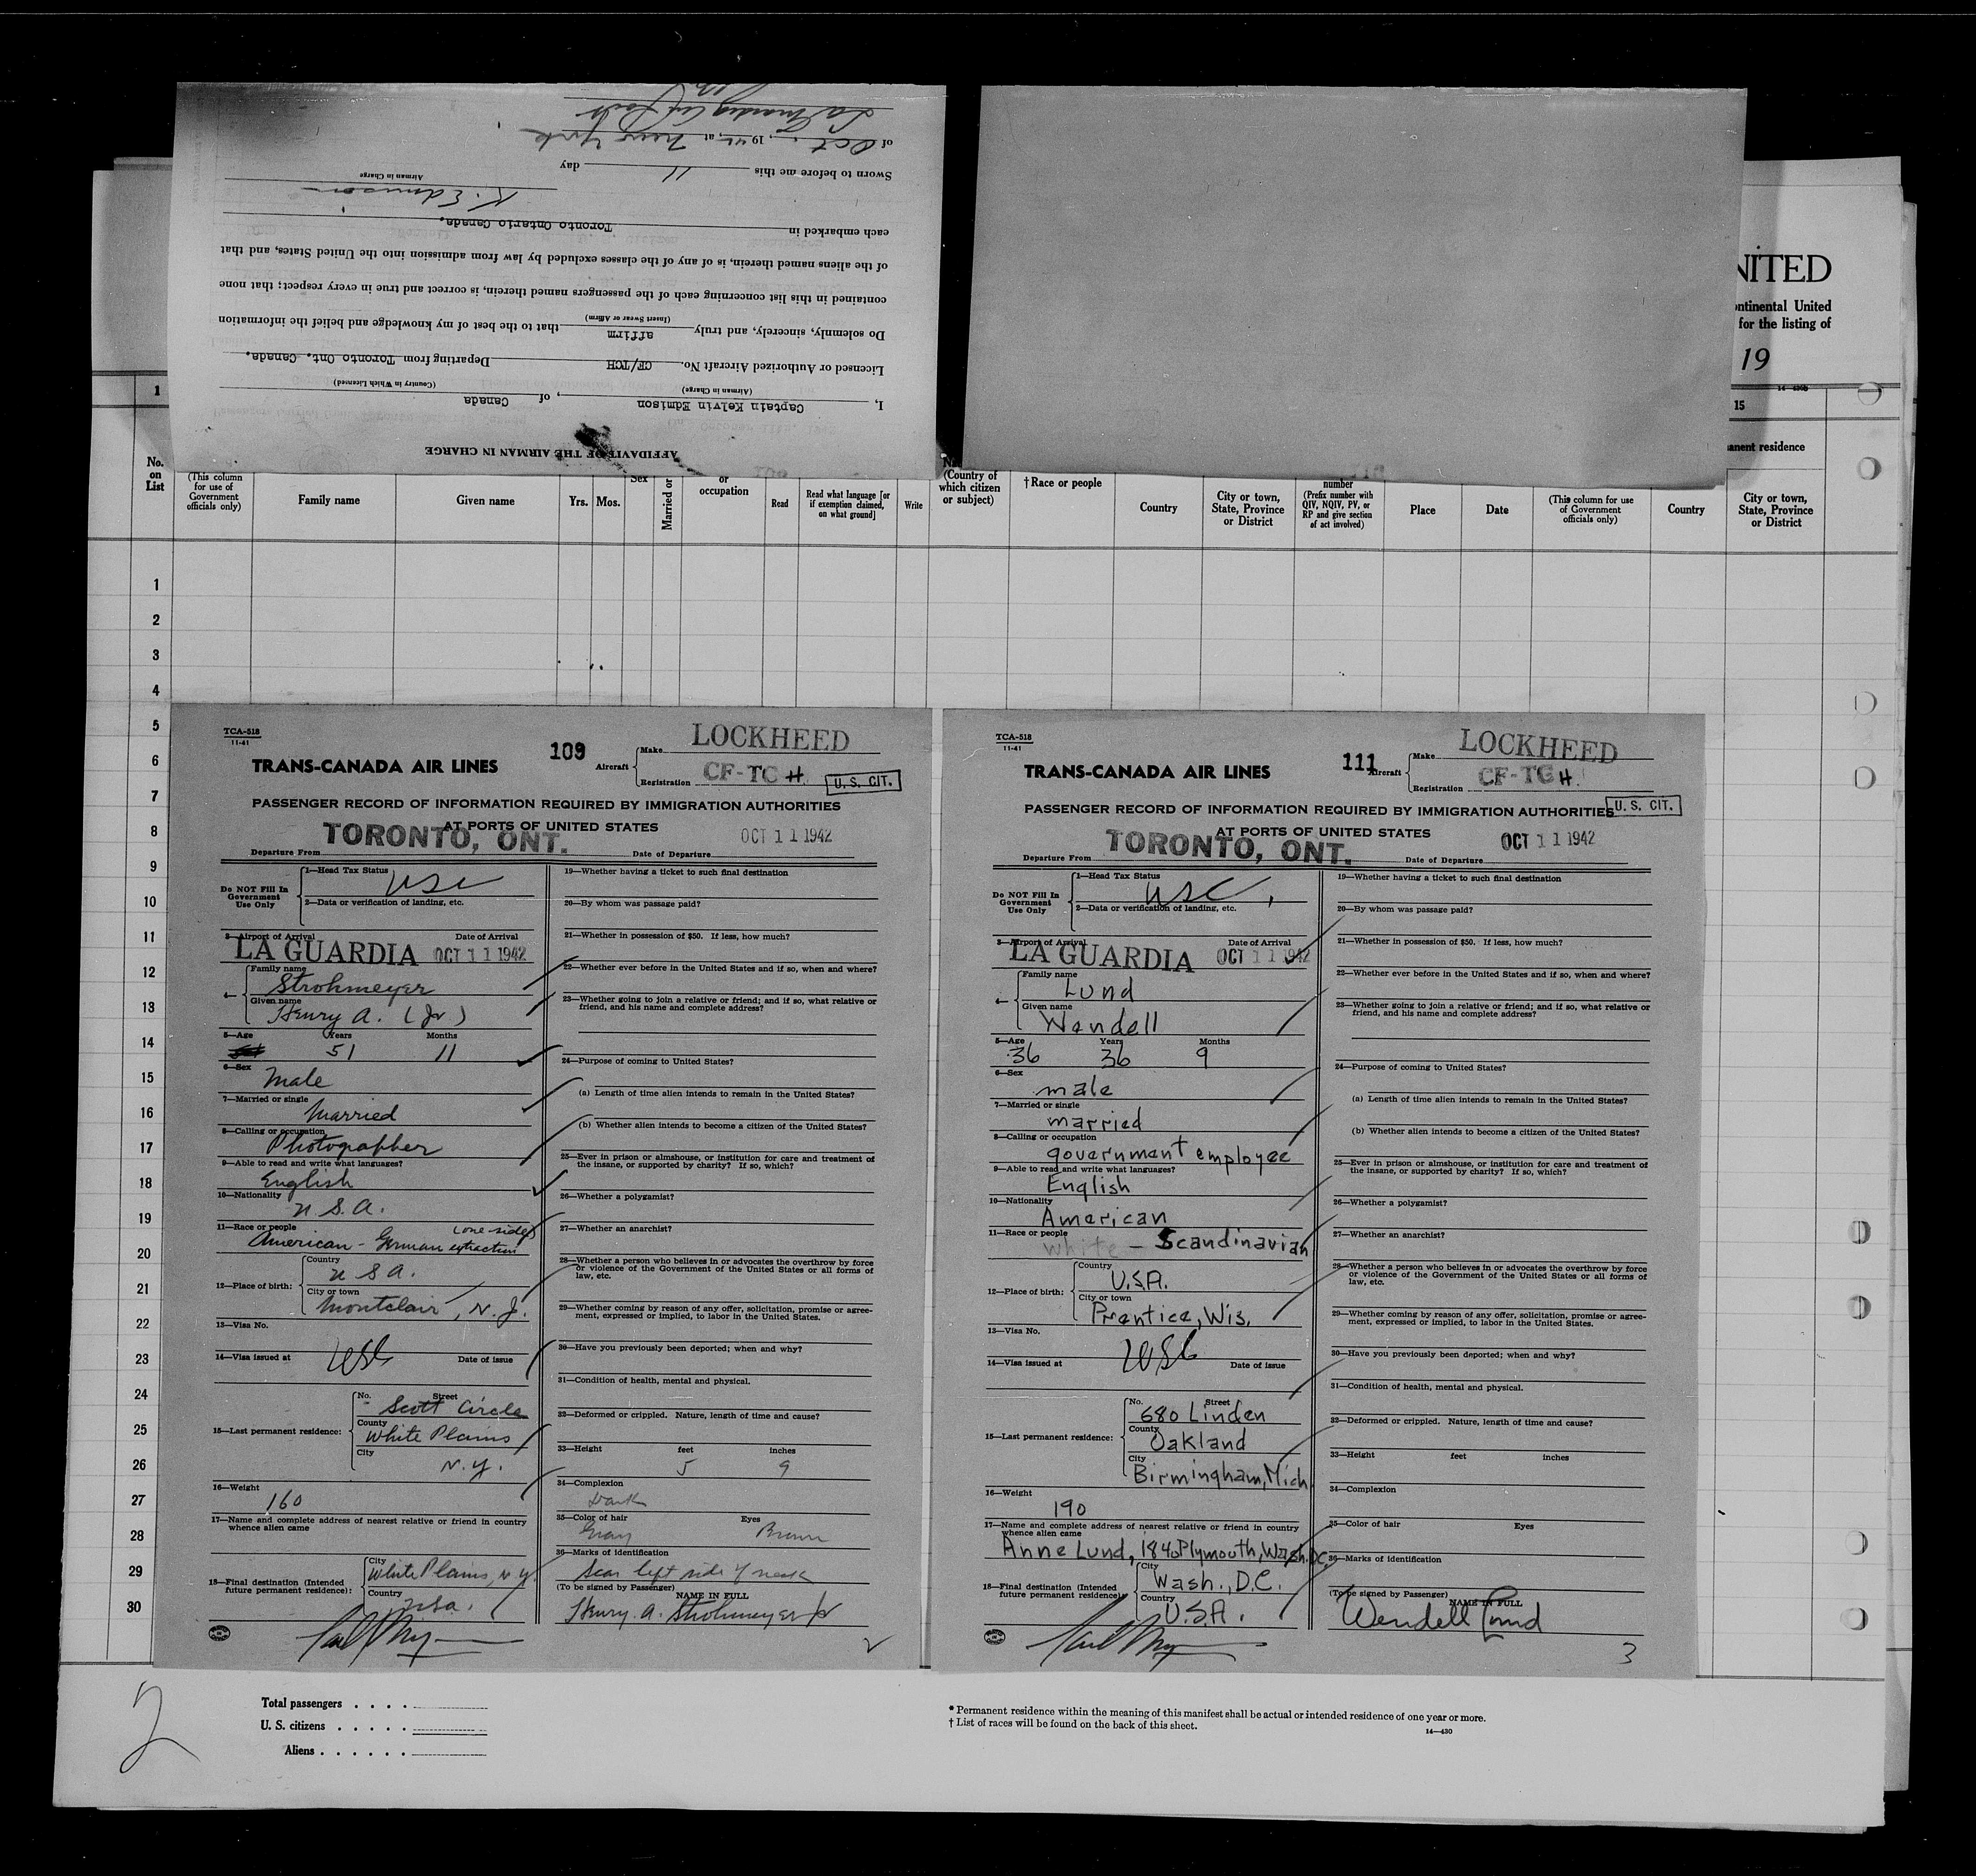 of Oct., 1942, at New York
Sworn to before me this 11 day
K. Edmison
Airman in Charge
each embarked in Toronto Ontario Canada.
of the aliens named therein, is of any of the classes excluded by law from admission into the United States, and that
contained in this list concerning each of the passengers named therein, is correct and true in every respect; that none
(Insert Swear or Affirm)
Do solemnly, sincerely, and truly affirm that to the best of my knowledge and belief the information
Licensed or Authorized Aircraft No. CF/TCH Departing from Toronto Ont. Canada.
(Airman in Charge) (Country in Which Licensed)
I, Captain Kelvin Edmison, of Canada
AFFIDAVIT OF THE AIRMAN IN CHARGE
NITED
ontinental United
for the listing of
19
14-430b
1
15
anent residence
No. on List
(This column for use of Government officials only)
Family name
Given name
Yrs.
Mos.
Sex
Married or
or occupation
Read
Read what language [or if exemption claimed, on what ground]
Write
(Country of which citizen or subject)
†Race or people
Country
City or town, State, Province or District
number (Prefix number with QIV, NQIV, PV, or RP and give section of act involved)
Place
Date
(This column for use of Government officials only)
Country
City or town, State, Province or District
1
2
3
4
5
6
7
8
9
10
11
12
13
14
15
16
17
18
19
20
21
22
23
24
25
26
27
28
29
30
TCA-518
11-41
109
TRANS-CANADA AIR LINES
Aircraft
Make LOCKHEED
Registration CF-TCH
U. S. CIT.
PASSENGER RECORD OF INFORMATION REQUIRED BY IMMIGRATION AUTHORITIES
AT PORTS OF UNITED STATES
Departure From TORONTO, ONT. Date of Departure OCT 11 1942
Do NOT Fill In Government Use Only
1—Head Tax Status USC
2—Data or verification of landing, etc.
3—Airport of Arrival LA GUARDIA Date of Arrival OCT 11 1942
4— Family name Strohmeyer
Given name Henry A. (Jr)
5—Age Years 51 Months 11
6—Sex Male
7—Married or single Married
8—Calling or occupation Photographer
9—Able to read and write what languages? English
10—Nationality U.S.A.
11—Race or people American - German extraction (one side)
12—Place of birth: Country U S A.
City or town Montclair, N.J.
13—Visa No.
14—Visa issued at Date of issue
15—Last permanent residence: No. Street Scott Circle
County White Plains
City N.Y.
16—Weight 160
17—Name and complete address of nearest relative or friend in country whence alien came
18—Final destination (Intended future permanent residence): City White Plains, N.Y.
Country USA.
19—Whether having a ticket to such final destination
20—By whom was passage paid?
21—Whether in possession of $50. If less, how much?
22—Whether ever before in the United States and if so, when and where?
23—Whether going to join a relative or friend; and if so, what relative or friend, and his name and complete address?
24—Purpose of coming to United States?
(a) Length of time alien intends to remain in the United States?
(b) Whether alien intends to become a citizen of the United States?
25—Ever in prison or almshouse, or institution for care and treatment of the insane, or supported by charity? If so, which?
26—Whether a polygamist?
27—Whether an anarchist?
28—Whether a person who believes in or advocates the overthrow by force or violence of the Government of the United States or all forms of law, etc.
29—Whether coming by reason of any offer, solicitation, promise or agreement, expressed or implied, to labor in the United States.
30—Have you previously been deported; when and why?
31—Condition of health, mental and physical.
32—Deformed or crippled. Nature, length of time and cause?
33—Height feet 5 inches 9
34—Complexion Dark
35—Color of hair Gray Eyes Brown
36—Marks of identification Scar left side of neck
(To be signed by Passenger) NAME IN FULL
Henry. A. Strohmeyer Jr
2
TCA-518
11-41
111
TRANS-CANADA AIR LINES
Aircraft
Make LOCKHEED
Registration CF-TCH
U. S. CIT.
PASSENGER RECORD OF INFORMATION REQUIRED BY IMMIGRATION AUTHORITIES
AT PORTS OF UNITED STATES
Departure From TORONTO, ONT. Date of Departure OCT 11 1942
Do NOT Fill In Government Use Only
1—Head Tax Status USC
2—Data or verification of landing, etc.
3—Airport of Arrival LA GUARDIA Date of Arrival OCT 11 1942
4— Family name Lund
Given name Wendell
5—Age 36 Years 36 Months 9
6—Sex male
7—Married or single married
8—Calling or occupation government employee
9—Able to read and write what languages? English
10—Nationality American
11—Race or people white - Scandinavian
12—Place of birth: Country U.S.A.
City or town Prentice, Wis.
13—Visa No.
14—Visa issued at Date of issue
15—Last permanent residence: No. Street 680 Linden
County Oakland
City Birmingham, Mich
16—Weight 190
17—Name and complete address of nearest relative or friend in country whence alien came
Anne Lund, 1840 Plymouth, Wash. DC.
18—Final destination (Intended future permanent residence): City Wash., D.C.
Country U.S.A.
19—Whether having a ticket to such final destination
20—By whom was passage paid?
21—Whether in possession of $50. If less, how much?
22—Whether ever before in the United States and if so, when and where?
23—Whether going to join a relative or friend; and if so, what relative or friend, and his name and complete address?
24—Purpose of coming to United States?
(a) Length of time alien intends to remain in the United States?
(b) Whether alien intends to become a citizen of the United States?
25—Ever in prison or almshouse, or institution for care and treatment of the insane, or supported by charity? If so, which?
26—Whether a polygamist?
27—Whether an anarchist?
28—Whether a person who believes in or advocates the overthrow by force or violence of the Government of the United States or all forms of law, etc.
29—Whether coming by reason of any offer, solicitation, promise or agreement, expressed or implied, to labor in the United States.
30—Have you previously been deported; when and why?
31—Condition of health, mental and physical.
32—Deformed or crippled. Nature, length of time and cause?
33—Height feet inches
34—Complexion
35—Color of hair Eyes
36—Marks of identification
(To be signed by Passenger) NAME IN FULL
Wendell Lund
3
2
Total passengers . . . .
U. S. citizens . . . . .
Aliens . . . . . .
* Permanent residence within the meaning of this manifest shall be actual or intended residence of one year or more.
† List of races will be found on the back of this sheet.
14—430